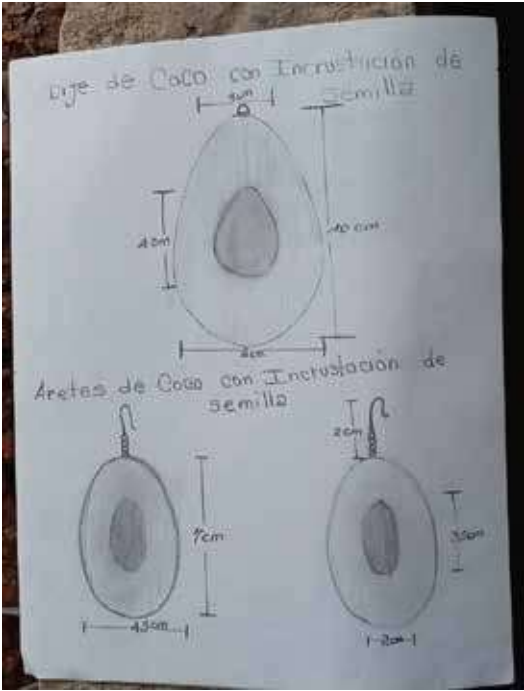 Dije de Coco con Incrustación de
semilla
4cm
10 cm
Aretes de Coco con Incrustación de
semilla
2cm
7cm
3.5cm
4.5cm
2cm